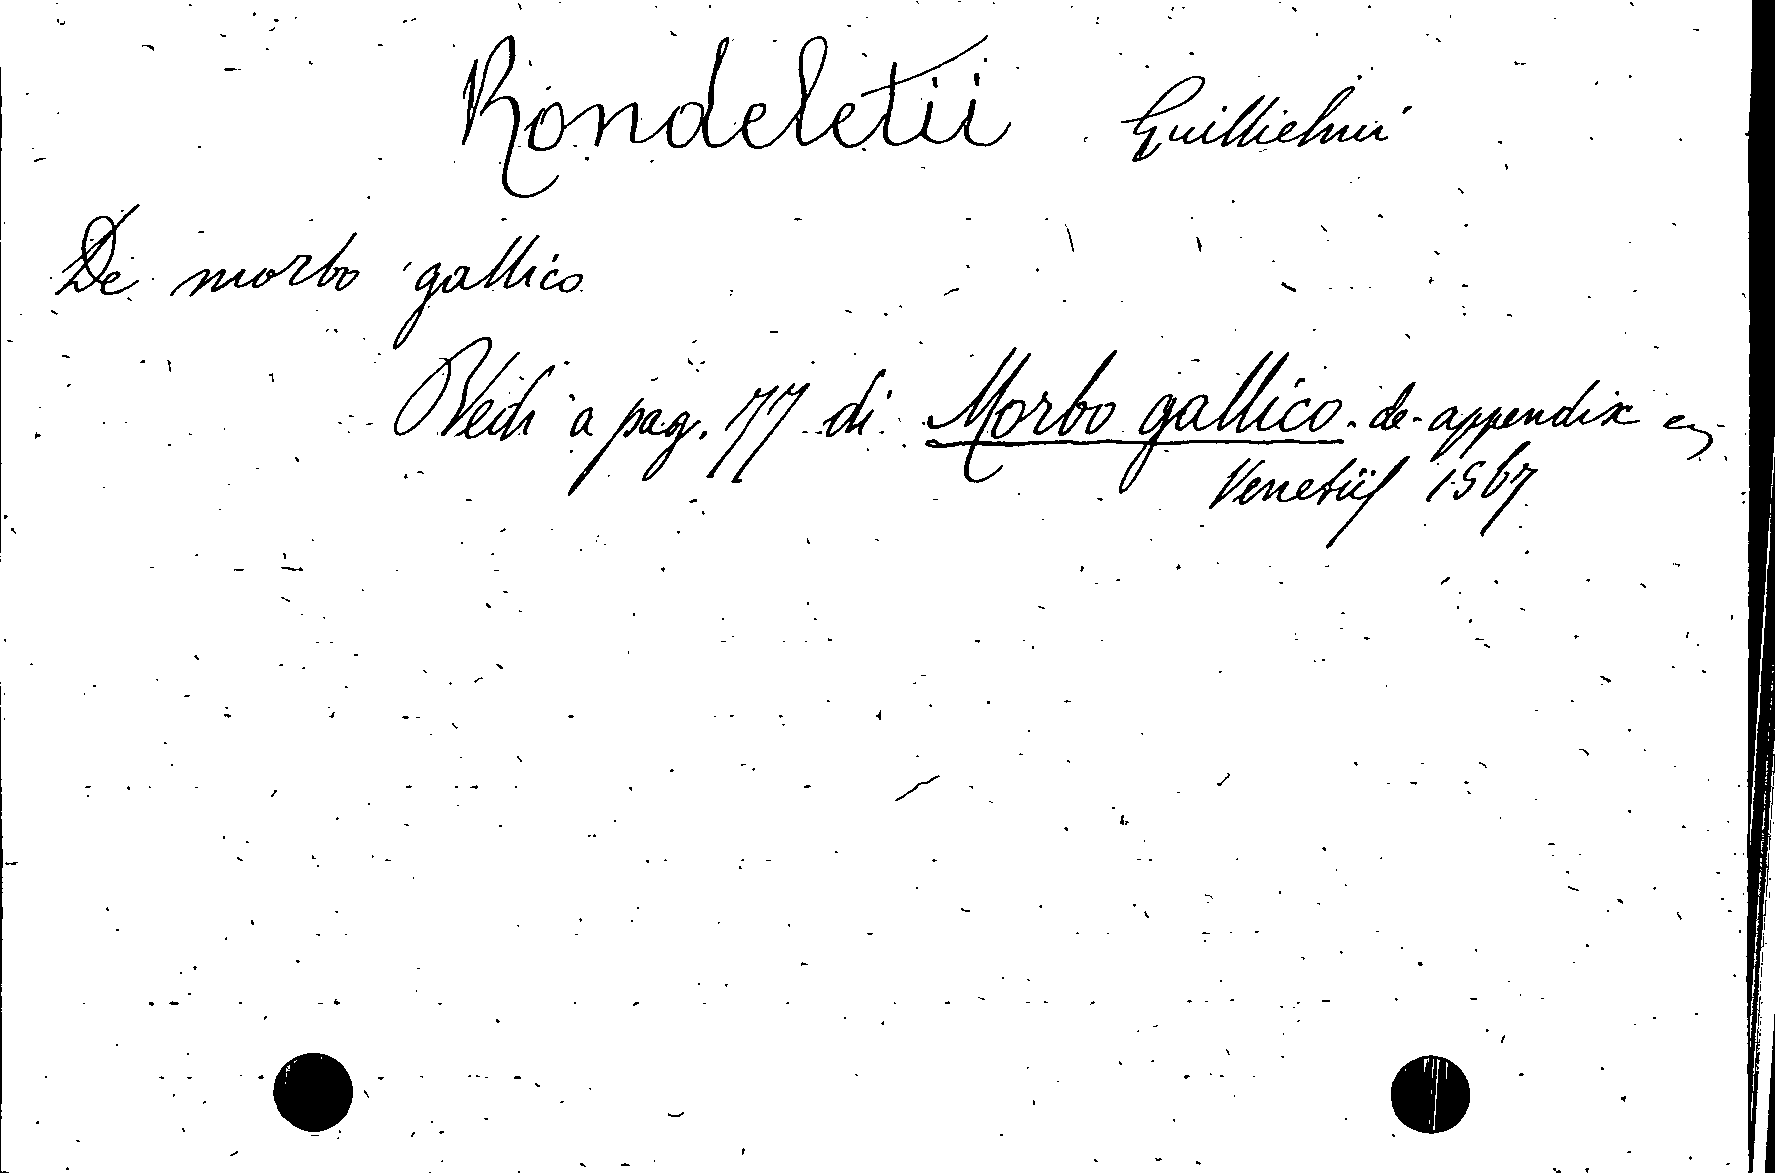 Rondeletii Guillielmi
De morbo gallico
Vedi a pag. 77 di Morbo gallico - de - appendix
Venetiis 1567